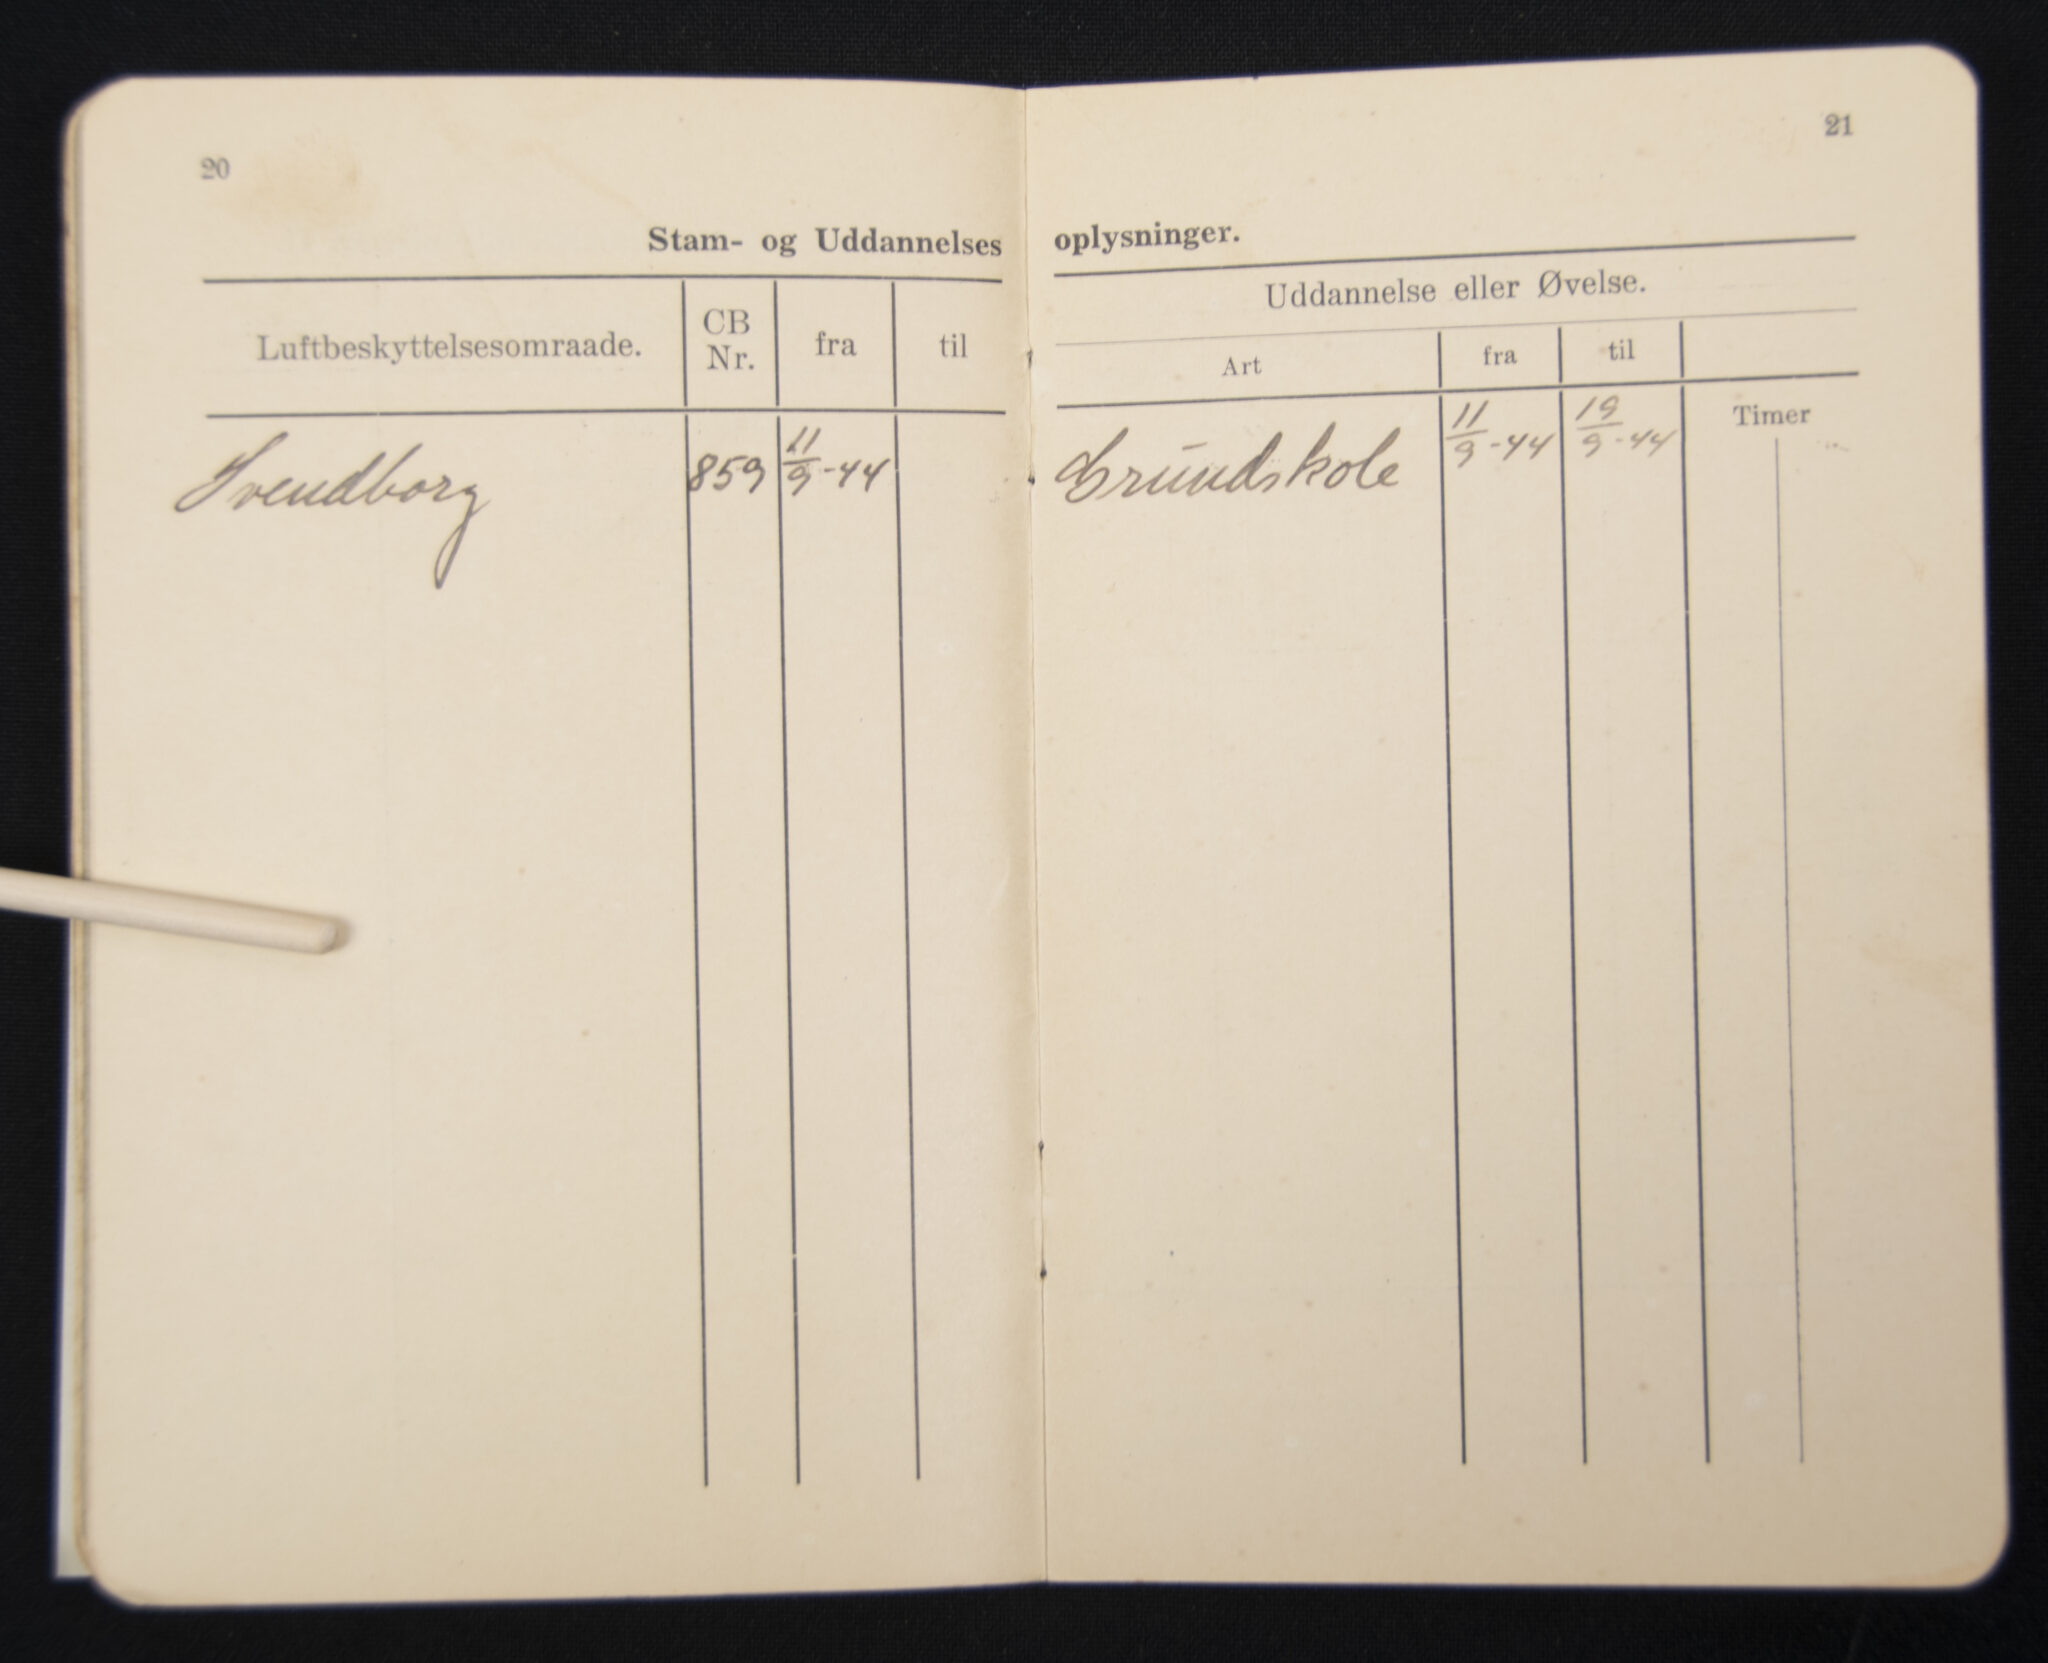 20
21
Stam- og Uddannelses oplysninger.
Luftbeskyttelsesomraade.
CB
Nr.
fra
til
Uddannelse eller Øvelse.
Art
fra
til
Timer
Svendborg 859 11/9-44
Grundskole 11/9-44 19/9-44